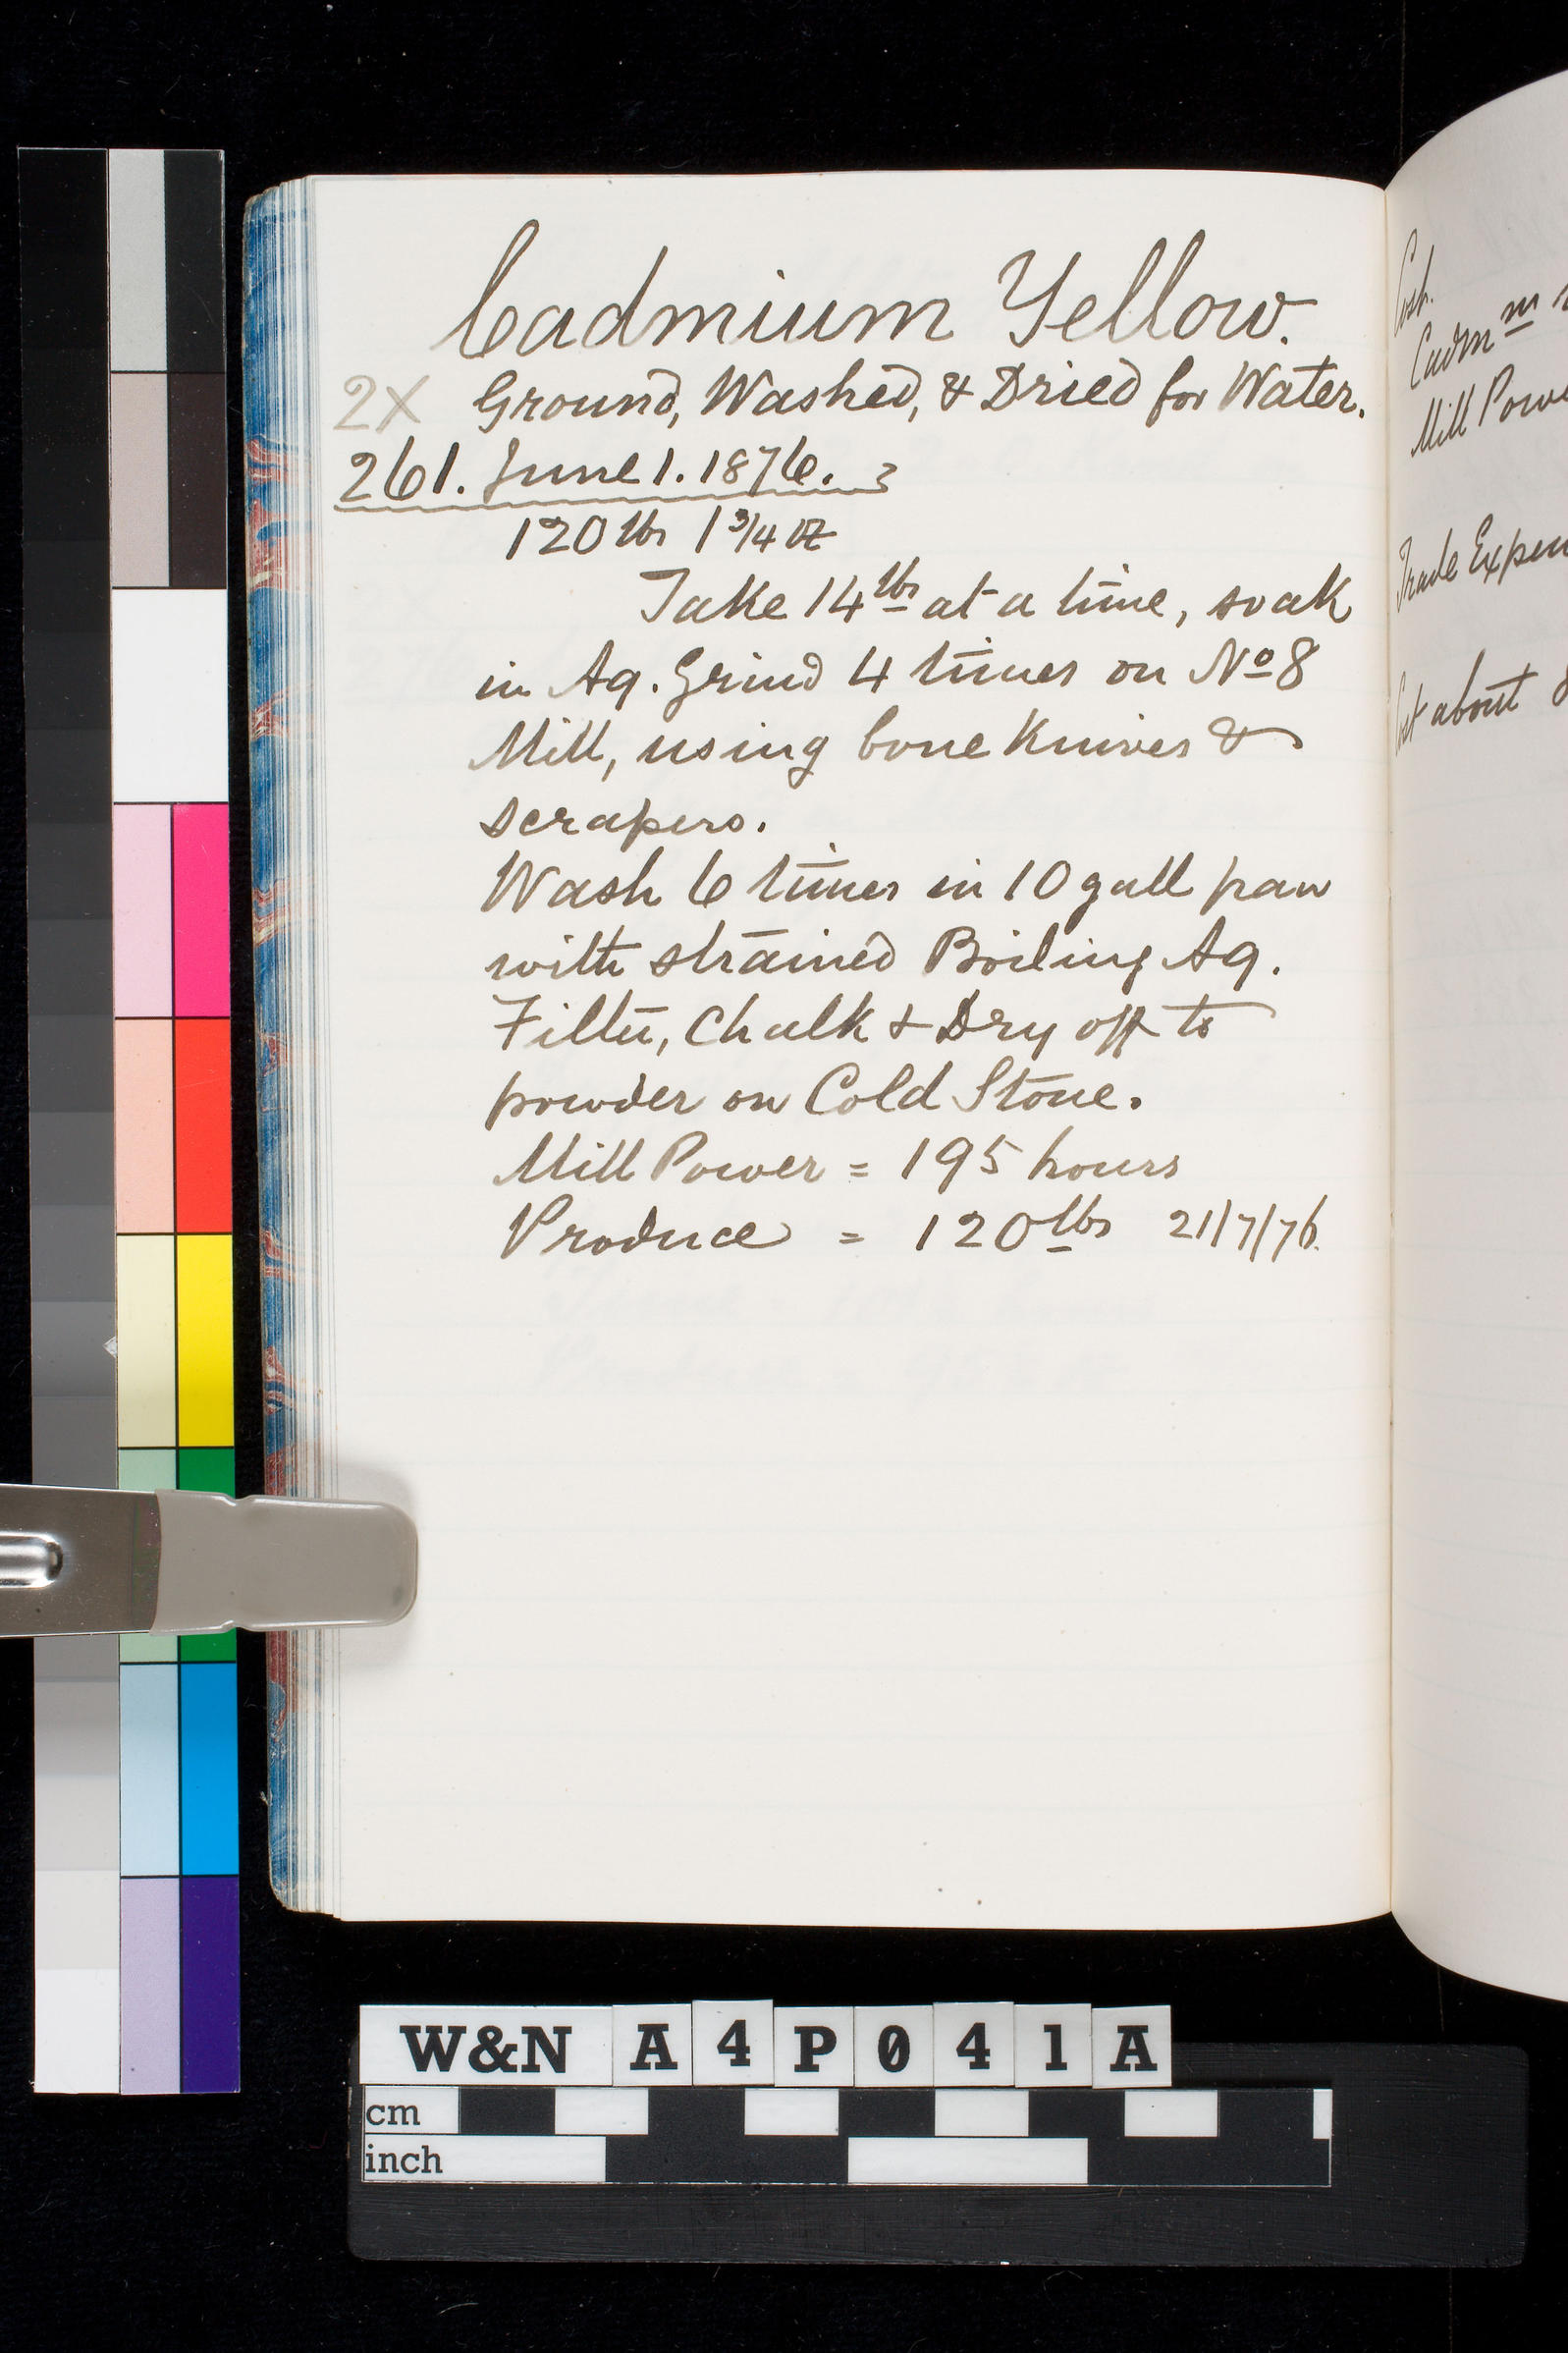 Cadmium Yellow.
2X Ground, Washed, & Dried for Water.
261. June 1. 1876.
120 lbs 1 3/4 oz
Take 14 lbs at a time, soak
in Aq. Grind 4 times on No 8
Mill, using bone Knives &
scrapers.
Wash 6 times in 10 gall pan
with strained Boiling Aq.
Filter, Chalk & Dry off to
powder on Cold Stone.
Mill Power = 195 hours
Produce = 120 lbs 21/7/76.
Cost.
Cadm m
Mill Powe
Trade Expen
Cost about
W&N A4P041A
cm
inch